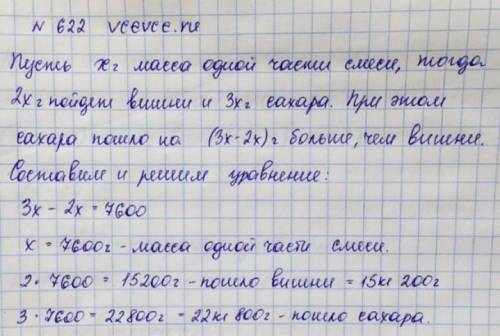 N 622 vcevce.ru
Пусть xг масса одной части смеси, тогда
2xг пойдет вишни и 3xг сахара. При этом
сахара пошло на (3x-2x)г больше, чем вишни.
Составим и решим уравнение:
3x - 2x = 7600
x = 7600г - масса одной части смеси.
2 · 7600 = 15200г - пошло вишни = 15кг 200г
3 · 7600 = 22800г = 22кг 800г - пошло сахара.